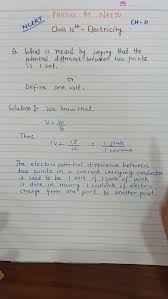 NCERT
PHYSICS BY NEETU
CH-11
Class 10th - Electricity.
Q. What is meant by saying that the
potential difference between two points
is 1 volt.
or
Define one volt.
Solution:- We know that,
V = W/Q
Thus
1V = 1J/1C = 1 joule/1 coulomb
The electric potential difference between
two points in a current carrying conductor
is said to be 1 volt if 1 joule of work
is done in moving 1 coulomb of electric
charge from one point to another point